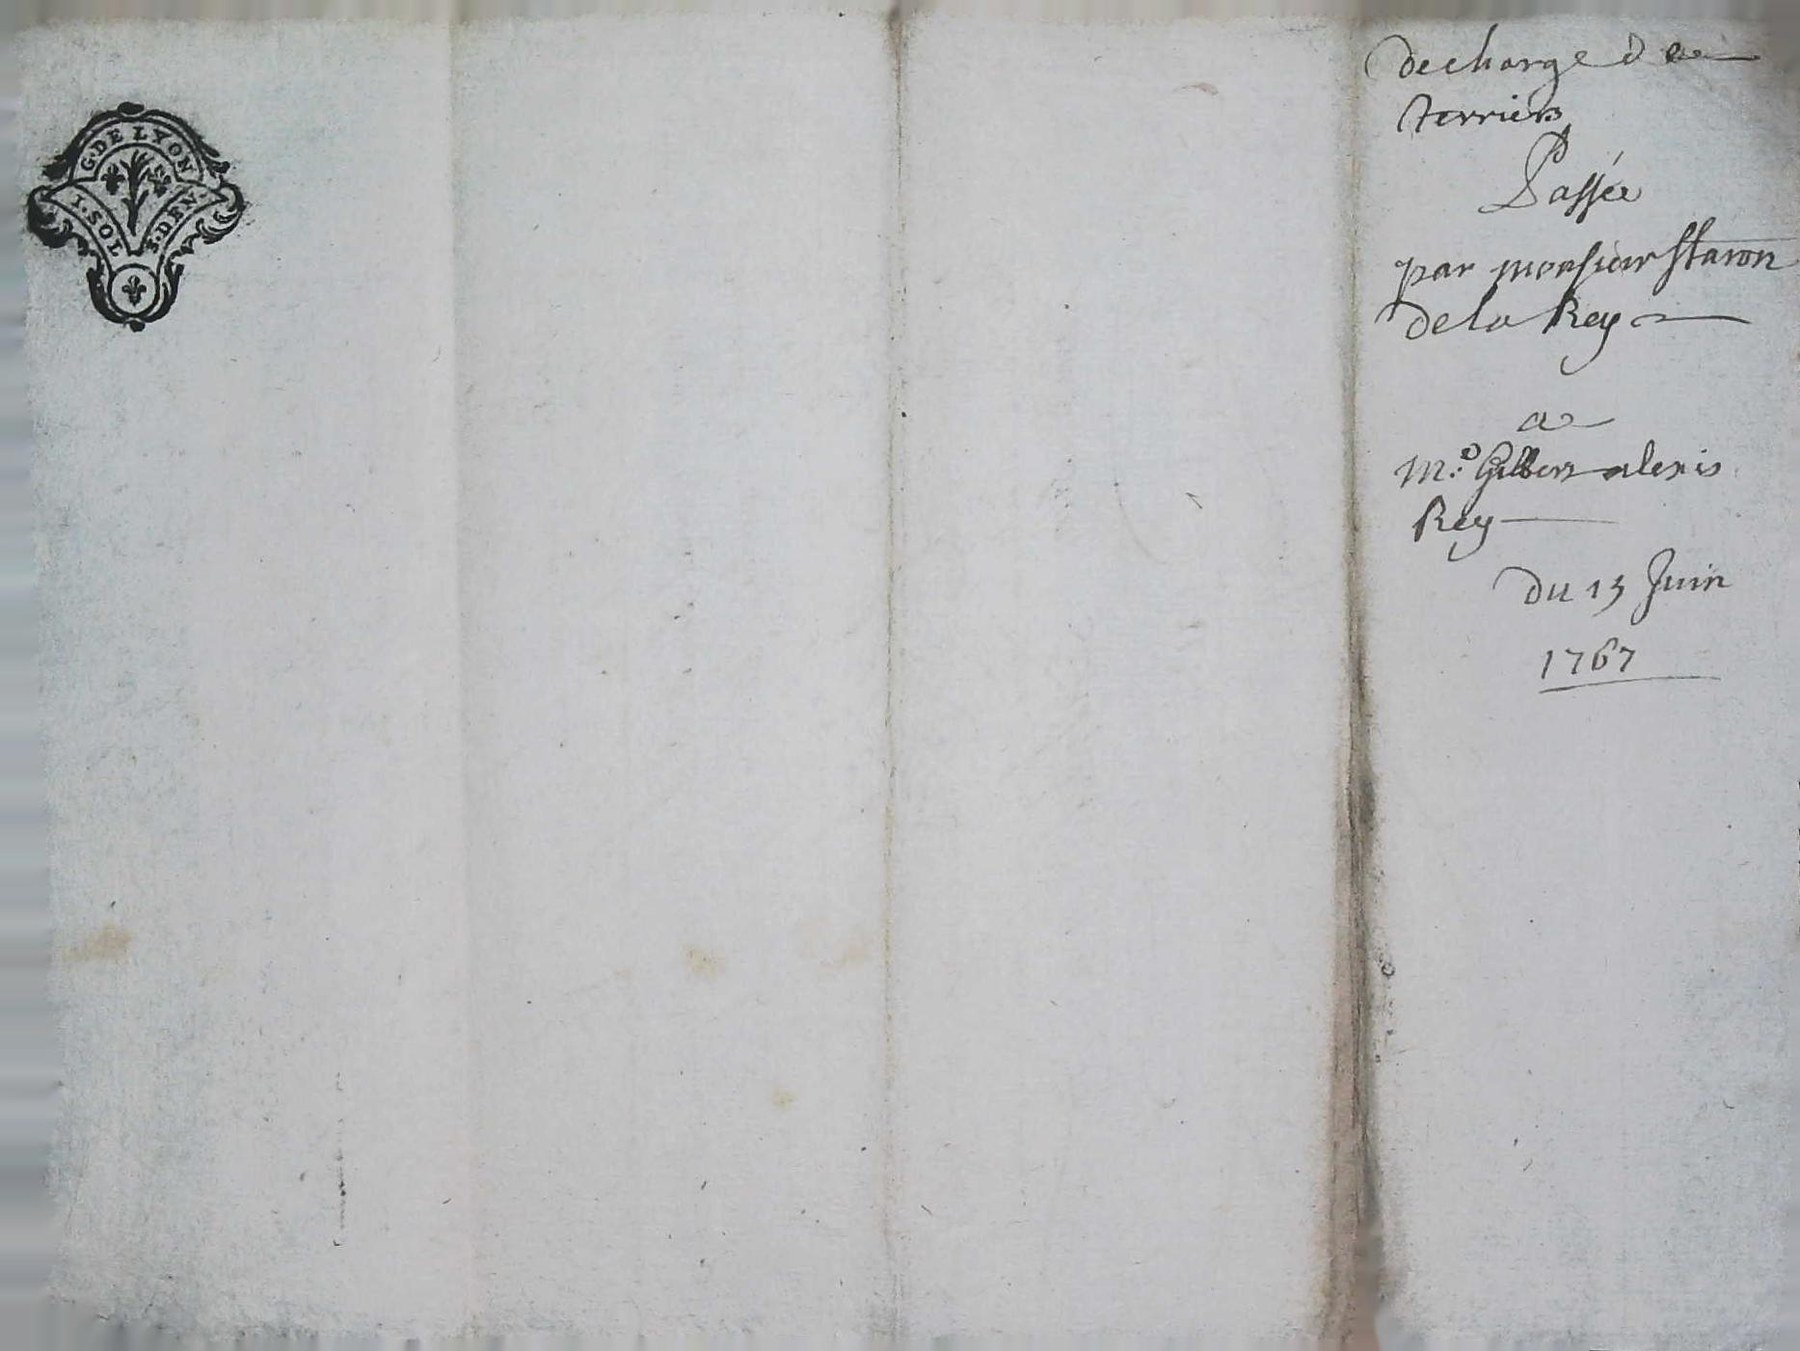 G. DE LYON
1. SOL 3. DEN.
decharge de
terriers
Passée
par monsieur Staron
de la Rey
a
Me. Gilbert alexis
Rey
du 13 Juin
1767